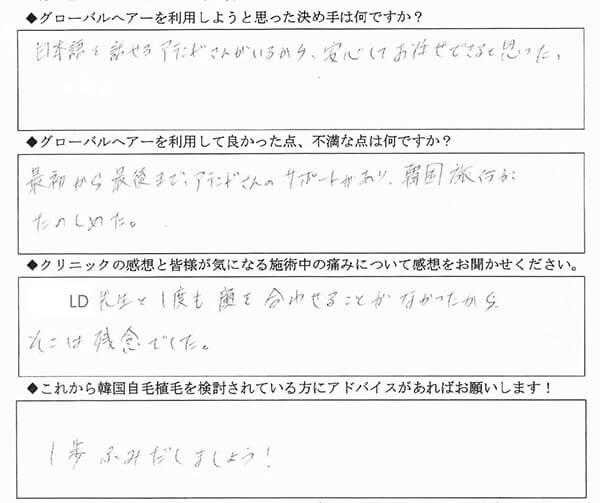 ◆グローバルヘアーを利用しようと思った決め手は何ですか？
日本語を話せるアテンドさんがいるから、安心してお任せできると思った。
◆グローバルヘアーを利用して良かった点、不満な点は何ですか？
最初から最後まで、アテンドさんのサポートがあり、韓国旅行が
たのしめた。
◆クリニックの感想と皆様が気になる施術中の痛みについて感想をお聞かせください。
LD 先生と1度も顔を合わせることがなかったから
そこは残念でした。
◆これから韓国自毛植毛を検討されている方にアドバイスがあればお願いします！
1歩ふみだしましょう！